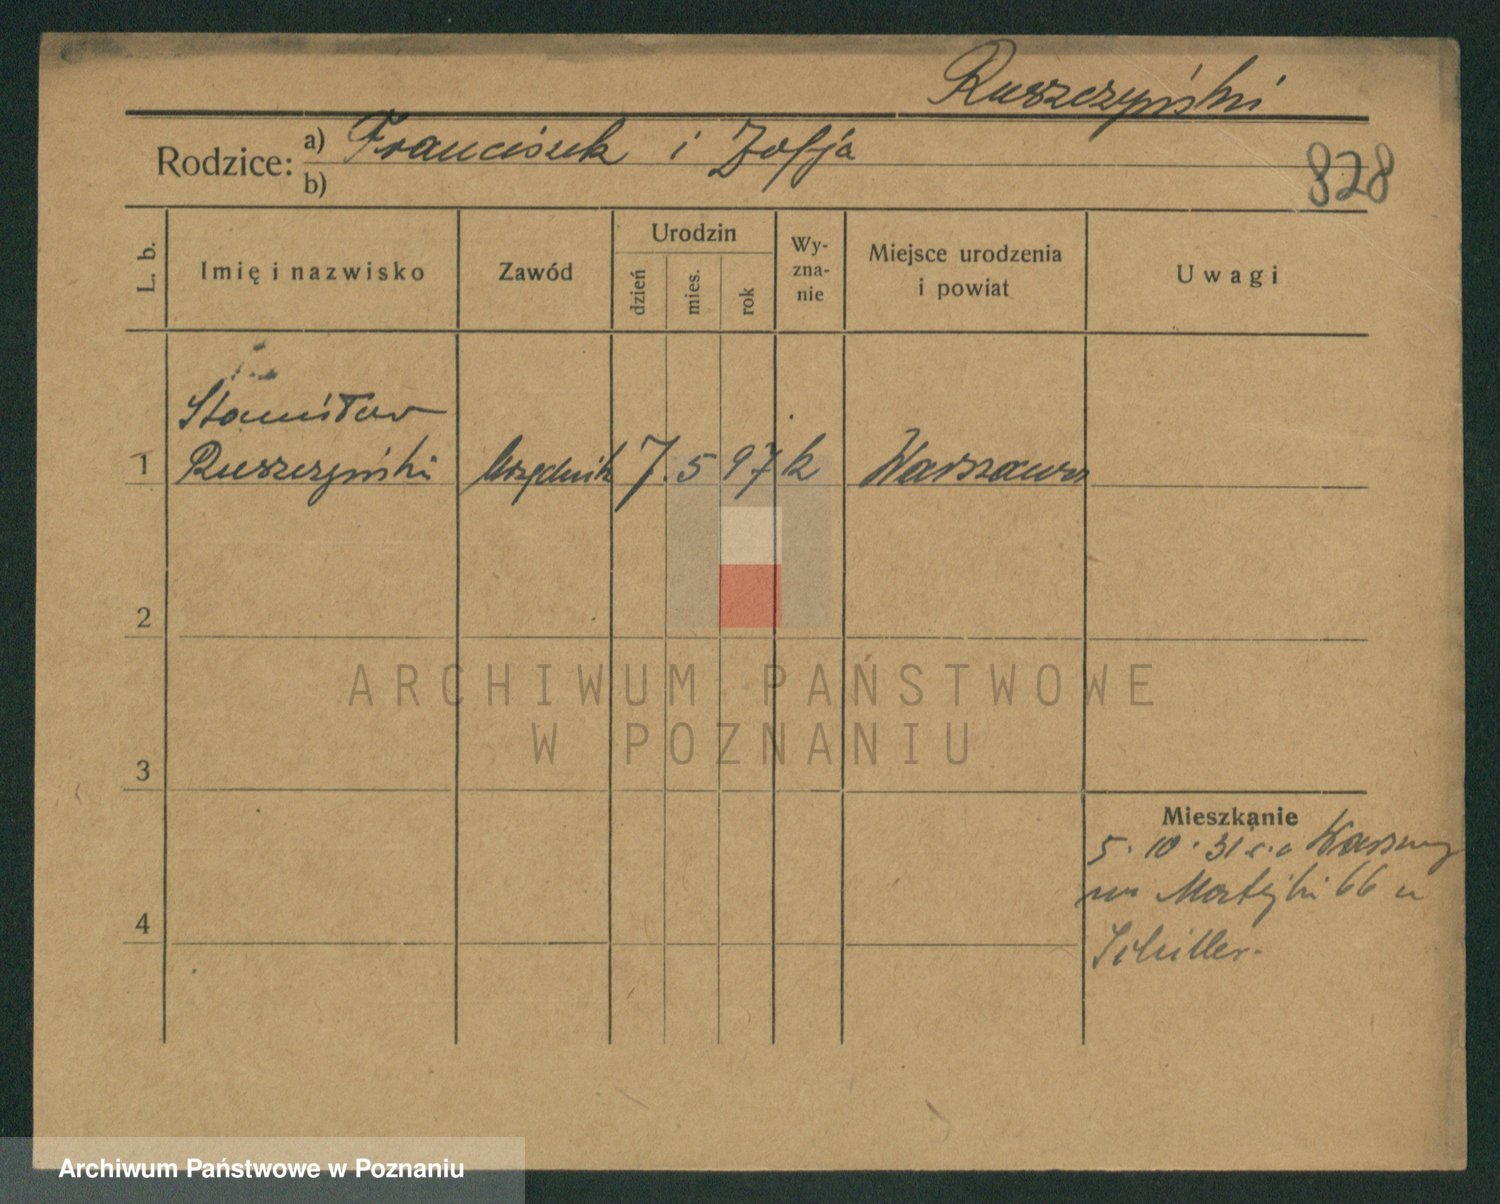 Ruszczyński
Rodzice: a) Franciszek i Zofja
b)
828
L. b. Imię i nazwisko Zawód Urodzin dzień mies. rok Wy-zna-nie Miejsce urodzenia i powiat Uwagi
Stanisław
1 Ruszczyński Urzędnik 7. 5 97 k Warszawa
2
ARCHIWUM PAŃSTWOWE
W POZNANIU
3
Mieszkanie
5.10.31 Warszawy
Matejki 66 u
4
Schiller.
Archiwum Państwowe w Poznaniu